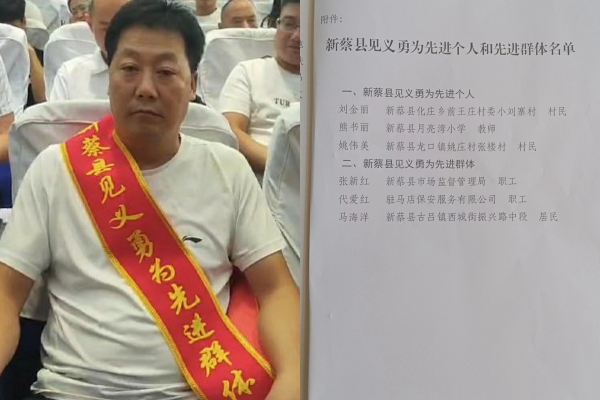 蔡县见义勇为先进群体
TUR
附件:
新蔡县见义勇为先进个人和先进群体名单
一、新蔡县见义勇为先进个人
刘金丽 新蔡县化庄乡前王庄村委小刘寨村 村民
熊书丽 新蔡县月亮湾小学 教师
姚伟英 新蔡县龙口镇姚庄村张楼村 村民
二、新蔡县见义勇为先进群体
张新红 新蔡县市场监督管理局 职工
代爱红 驻马店保安服务有限公司 职工
马海洋 新蔡县古吕镇西城街振兴路中段 居民